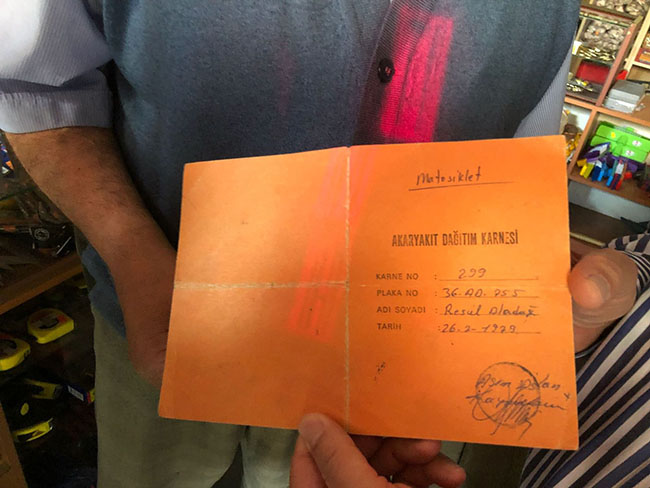 Motosiklet
AKARYAKIT DAĞITIM KARNESİ
KARNE NO : 299
PLAKA NO : 36.AD.755
ADI SOYADI : Resul Aladağ
TARİH : 26-2-1979